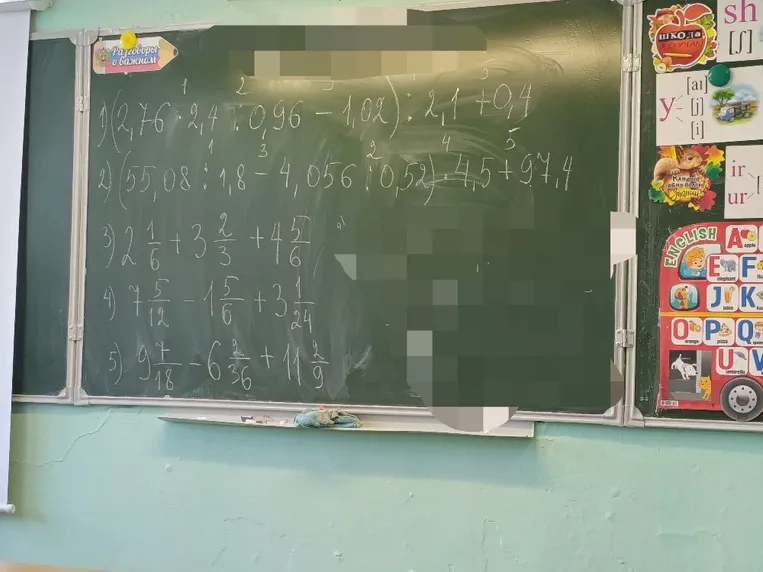 Разговоры
о важном
1 2 3 4 5
1) (2,76 · 2,4 : 0,96 - 1,02) : 2,1 + 0,4
1 3 2 4 5
2) (55,08 : 1,8 - 4,056 : 0,52) · 4,5 + 97,4
3) 2 1/6 + 3 2/3 + 4 5/6
4) 7 5/12 - 1 5/6 + 3 1/24
5) 9 7/18 - 6 2/36 + 11 2/9
ШКОЛА
sh
[ʃ]
y [aɪ]
[j]
[i]
ir
ur
ENGLISH
A apple
E elephant F
J K
O orange P pizza Q
U umbrella V